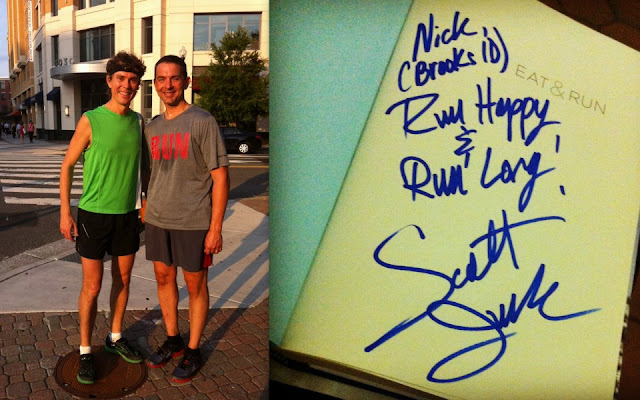 RUN
Nick,
(Brooks iD)
EAT & RUN
Run Happy
&
Run Long!
Scott Jurek